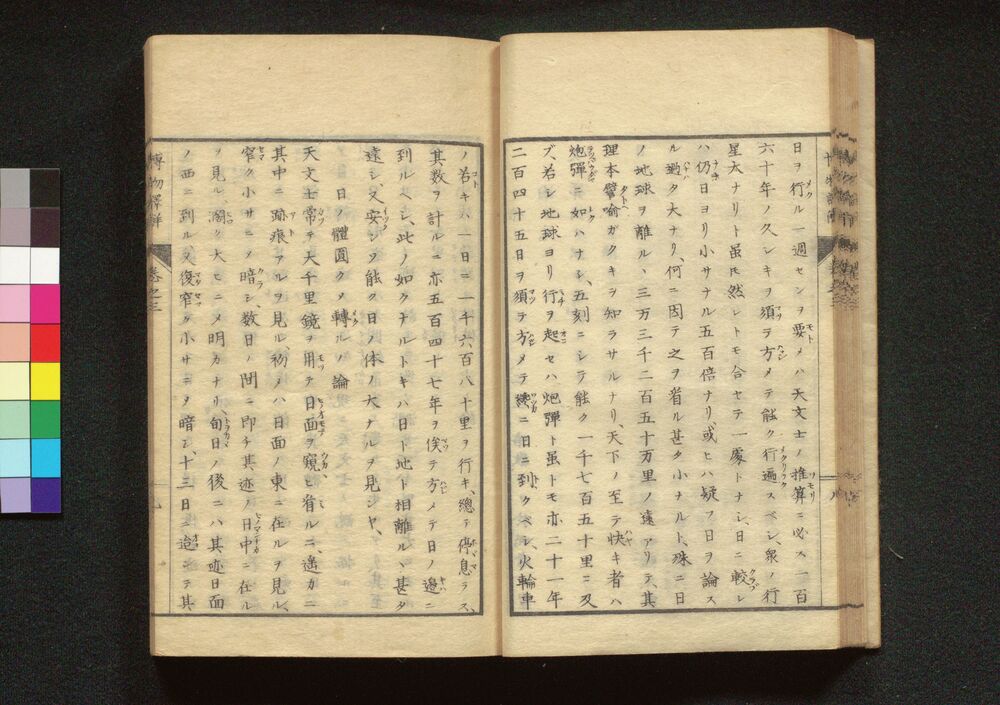 日ヲ行ル一週センヲ要メハ天文士ノ推算ニ必ス一百
六十年ノ久シキヲ須ヲ方メテ能ク行遍スベシ、衆ノ行
星大ナリト虽モ然レトモ合セテ一處トナシ、日ニ較レ
ハ仍日ヨリ小サナル五百倍ナリ、或ヒハ疑フ日ヲ論ス
ル過ク大ナリ、何ニ因テ之ヲ看ル甚タ小ナルト、殊ニ日
ノ地球ヲ離ル、三万三千二百五十万里ノ遠アリテ、其
理本譬喻ガクキヲ知ラサルナリ、天下ノ至テ快キ者ハ
炮彈ニ如ハナシ、五刻ニシテ能ク一千七百五十里ニ及
ブ、若シ地球ヨリ行ヲ起セハ炮彈ト虽トモ亦二十一年
二百四十五日ヲ須テ方メテ纔ニ日ニ到クベシ、火輪車
ノ若キハ一日ニ一千六百八十里ヲ行キ、總テ停息ラス、
其数ヲ計ルニ亦五百四十七年ヲ俟テ方メテ日ノ邊ニ
到ルベシ、此ノ如クナルトキハ日ト地ト相離ル、甚タ
遠シ、又安ンソ能ク日ノ体ノ大ナルヲ見ンヤ、
日ノ體圓クメ轉ルノ論
天文士常テ大千里鏡ヲ用テ日面ヲ窺ヒ看ルニ、遙カニ
其中ニ跡痕アルヲ見ル、初メハ日面ノ東ニ在ルヲ見ル、
窄ク小サニメ暗シ、数日ノ間ニ即チ其迹ノ日中ニ在ル
ヲ見ル、濶ク大ヒニメ明カナリ、旬日ノ後ニハ其迹日面
ノ西ニ到ル、又復窄ク小サニメ暗シ、十三日迨ニテ其
博物釋詳 巻之三 九